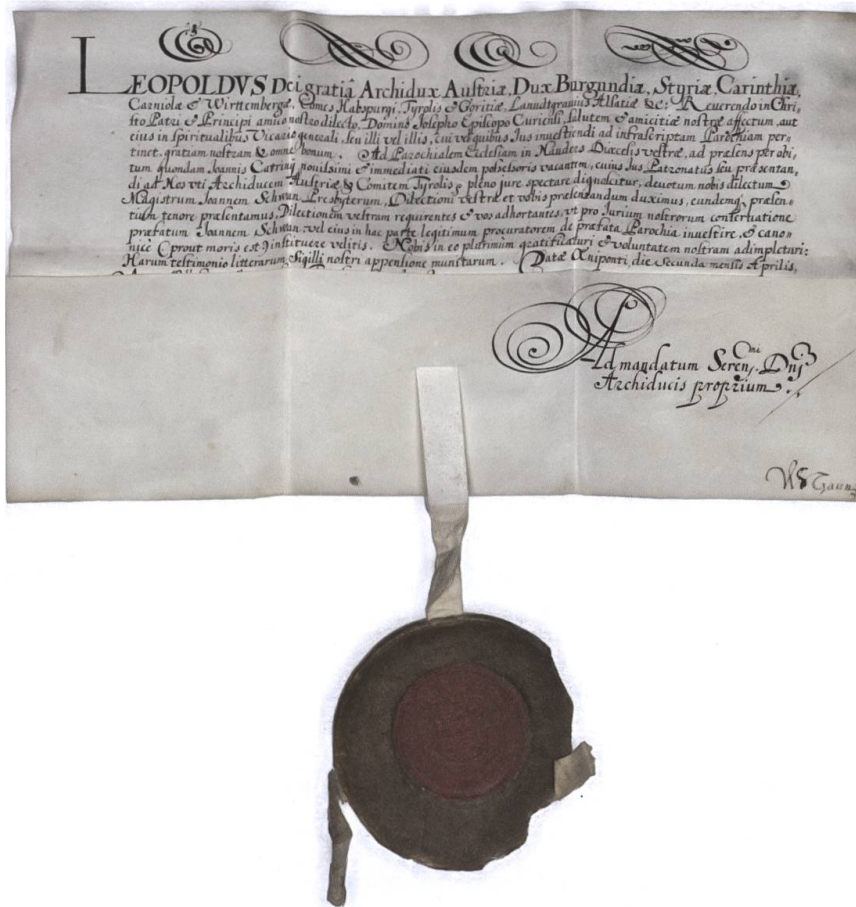 LEOPOLDVS Dei gratiâ Archidux Austriæ, Dux Burgundiæ, Styriæ, Carinthiæ,
Carniolæ & Wirttembergæ, Comes Habspurgi, Tyrolis & Goritiæ, Lanndtgrauius Alsatiæ &c: Reuerendo in Chri„
sto Patri & Principi amico nostro dilecto, Domino Josepho Episcopo Curiensi, salutem & amicitiæ nostræ affectum, aut
eius in spiritualibus Vicario generali, seu illi vel illis, cui vel quibus Jus inuestiendi ad infrascriptam Parochiam per„
tinet, gratiam nostram & omne bonum. Ad Parochialem Ecclesiam in Nauders Diœcesis vestræ, ad præsens per obi„
tum quondam Joannis Catrinj nouissimi & immediati eiusdem possessoris vacantem, cuius Jus Patronatus seu præsentan„
di ad Nos vti Archiducem Austriæ & Comitem Tyrolis, pleno jure spectare dignoscitur, deuotum nobis dilectum
Magistrum Joannem Schwan, Presbyterum, Dilectioni vestræ et vobis præsentandum duximus, eundemq; præsen„
tium tenore præsentamus, Dilectionem vestram requirentes & vos adhortantes, vt pro Jurium nostrorum conseruatione
præfatum Joannem Schwan, vel eius in hac parte legitimum procuratorem de præfata Parochia inuestire, & cano„
nicè prout moris est instituere velitis. Nobis in eo plurimum gratificaturi & voluntatem nostram adimpleturi:
Harum testimonio litterarum, Sigilli nostri appensione munitarum. Datæ Œniponti, die Secunda mensis Aprilis,
Ad mandatum Seren<sup>mi</sup>. Dnj
Archiducis proprium.